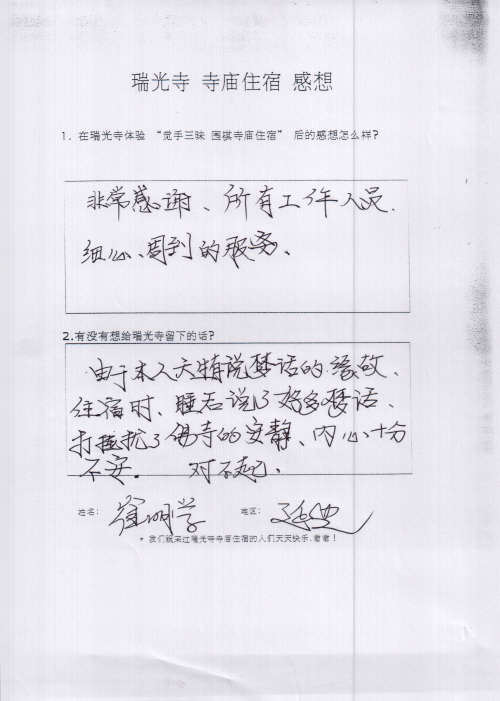 瑞光寺 寺庙住宿 感想
1. 在瑞光寺体验 “觉手三昧 围棋寺庙住宿” 后的感想怎么样?
非常感谢、所有工作人员.
细心、周到的服务、
2.有没有想给瑞光寺留下的话?
由于本人天生有说梦话的缘故、
住宿时、睡后说了好多梦话、
打扰了 寺的安静、内心十分
不安. 对不起、
姓名:
明学
地区:
* 我们祝来过瑞光寺寺庙住宿的人们天天快乐.谢谢!